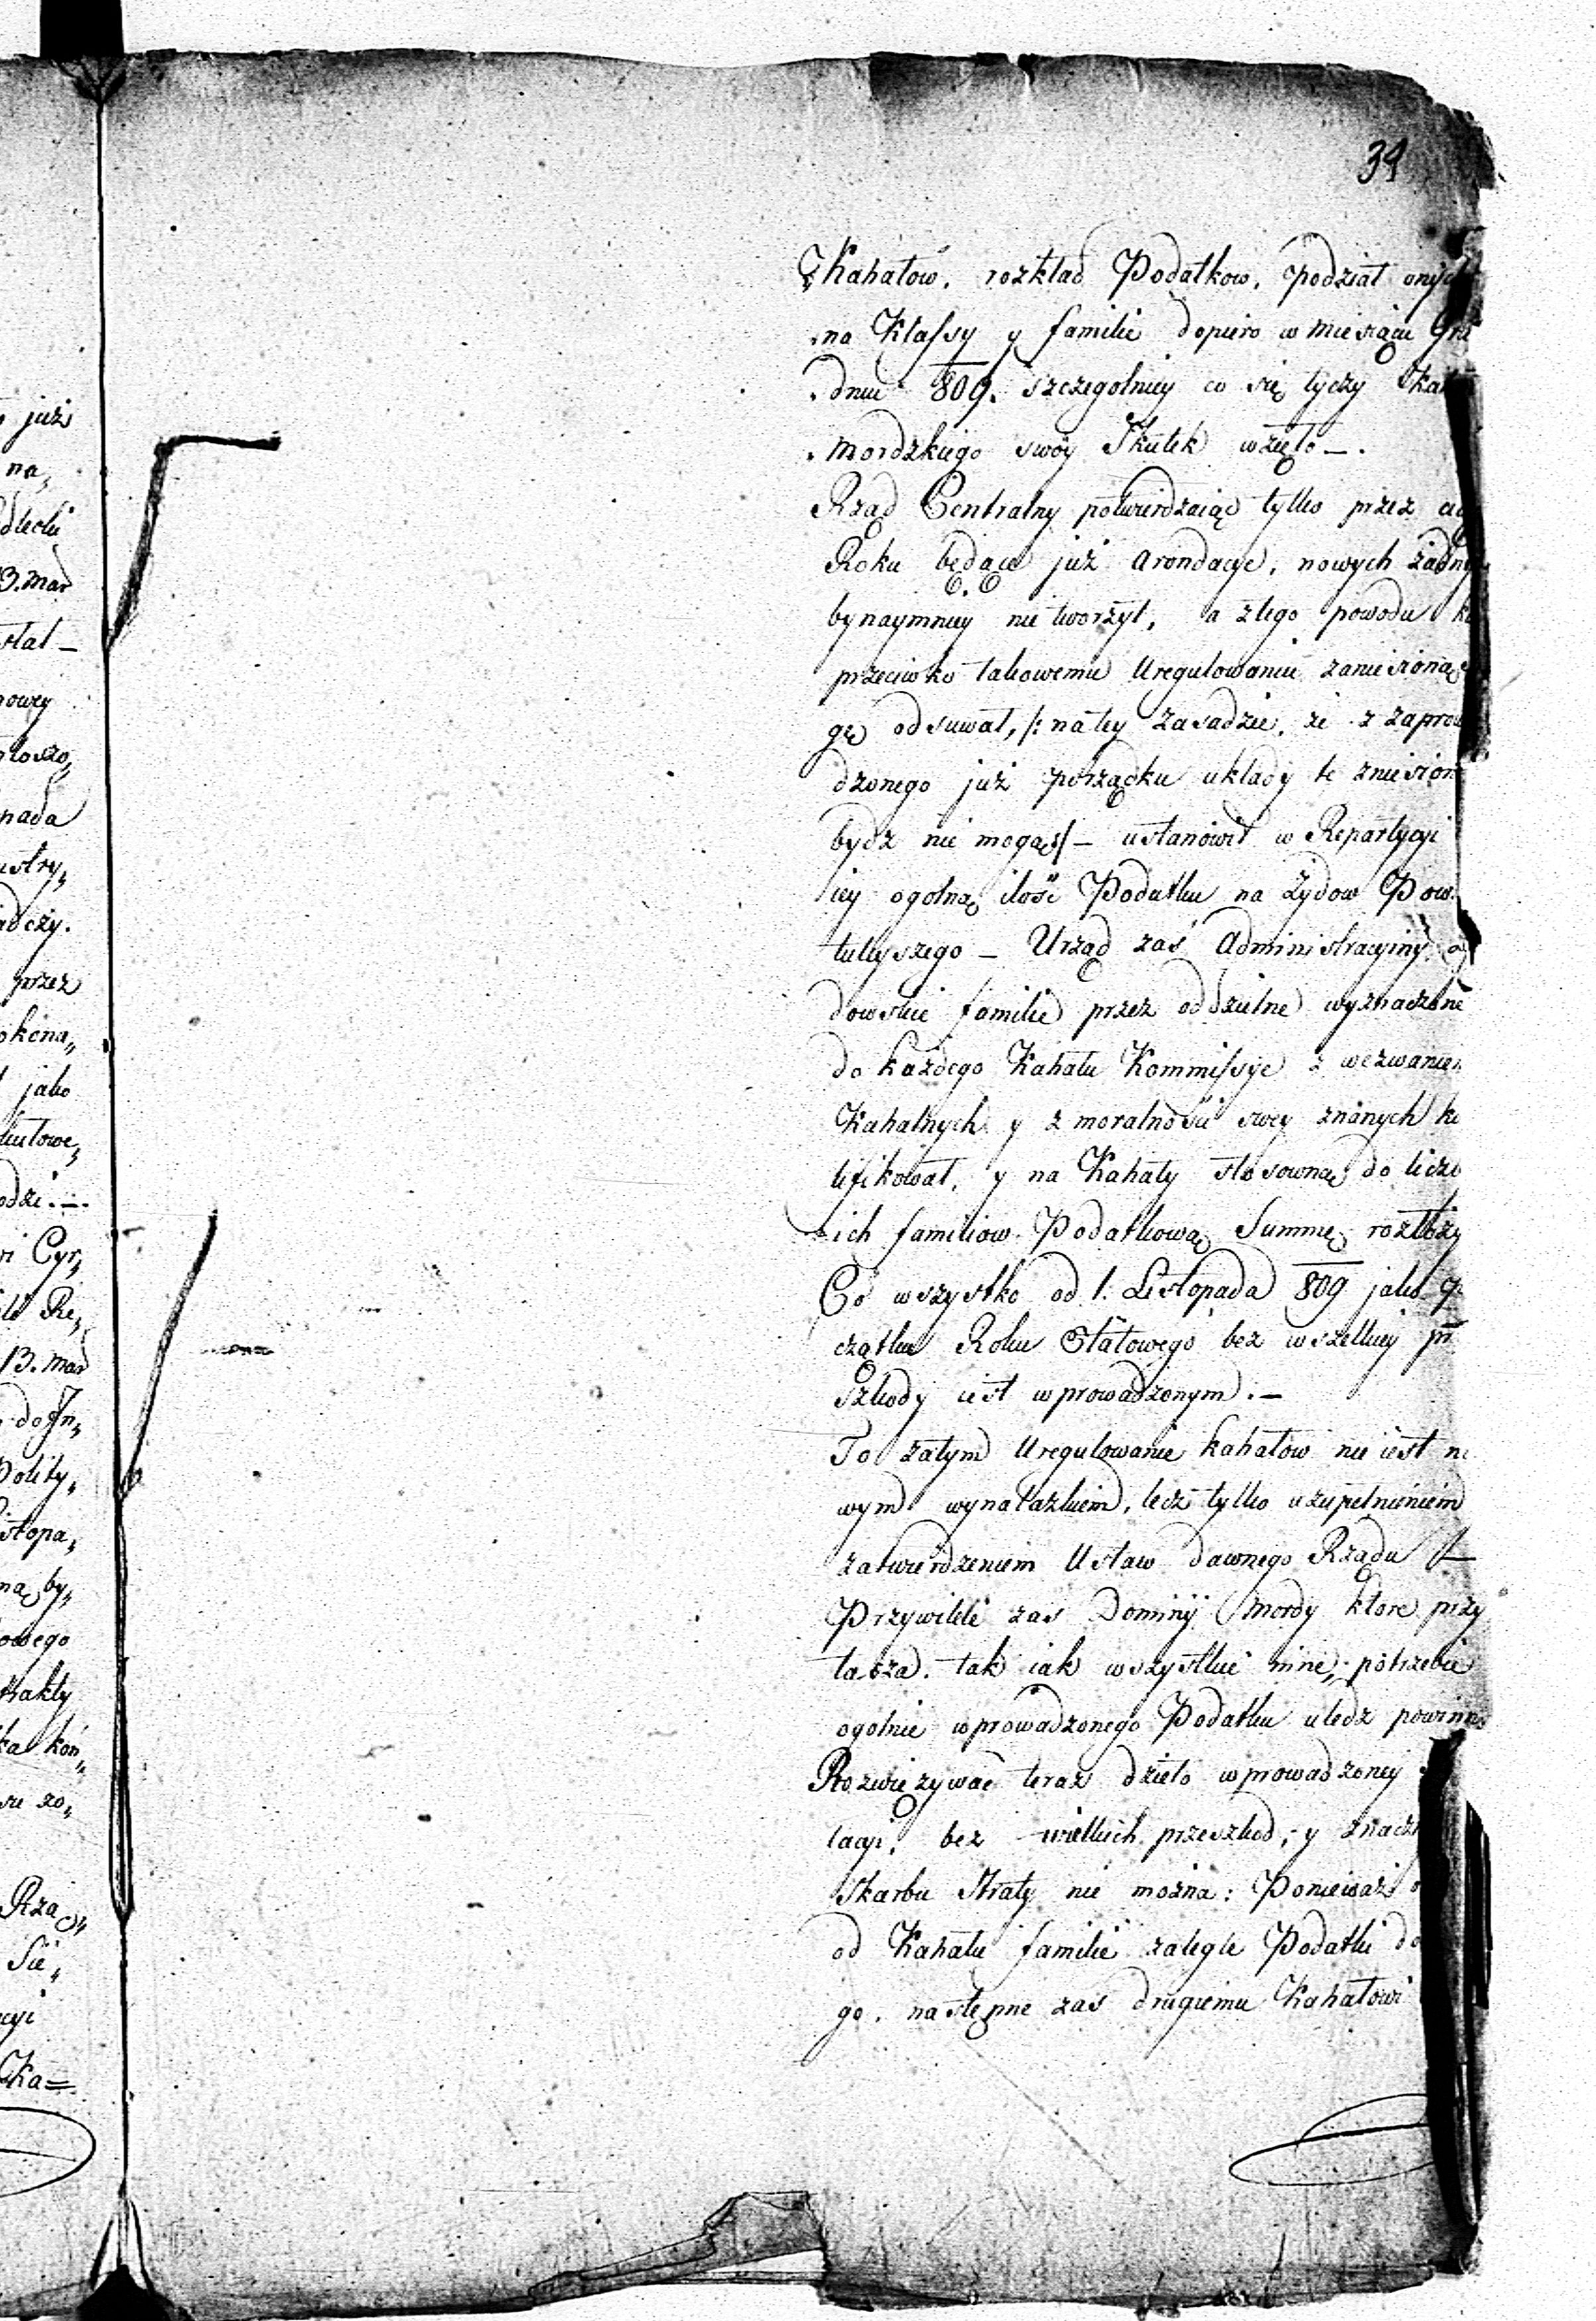 już
na„
dlecki
3. Mar
stał –
nowey
łoszo„
pada
ustry„
adczy.
przez
okona„
jako
odzi. –
ri Cyr„
Re„
13. Mar
do Jn„
Polity„
istopa„
ną by„
owego
trakty
ka kon„
Rzą„
Sie„
cyi
Ka=
39
Kahałow, rozkład Podatkow, podział onych
„na Klassy y familie dopiero w Miesiącu Gru
„dniu 809. szczegolniey co się tyczy Kah
„Mordzkiego swoy Skutek wzięło –.
Rząd Centralny potwierdzaiąc tylko przez
Roku będące już Arondacye, nowych żadny
bynaymniey nie tworzył, a z tego powodu
przeciwko takowemu Uregulowaniu zaniesioną
gę odsuwał, /: na tey zasadzie, że z zaprow
dzonego już porządku układy te zniesion
bydz nie mogą :/ – ustanowił w Repartycyi
iey ogolną ilość Podatku na Żydow Pow.
tuteyszego – Urząd zaś Administracyiny
dowskie familie przez oddzielne wyznaczone
do każdego Kahału Kommissye z wezwaniem
Kahalnych y z moralności swey znanych
tifikował, y na Kahały stosownie do liczb
ich familiow Podatkową Summę rozłoży
Co wszystko od 1. Listopada 809 jako
czątku Roku Etatowego bez wszelkiey pr
szkody iest wprowadzonym. –
To zatym Uregulowanie kahałow nie iest no
wym wynalazkiem, lecz tylko uzupełnieniem
zatwierdzeniem Ustaw dawnego Rządu –
Przywileie zaś Dominij Mordy ktore przy
tacza, tak iak wszystkie inne, potrzebie
ogolnie wprowadzonego Podatku uledz powinny
Rozwiązywać teraz dzieło wprowadzoney
lacyi, bez wielkich przeszkod, y znaczn
Skarbu Straty nie można: Ponieważ
od Kahału familie zaległe Podatki do
go, następne zaś drugiemu Kahałowi